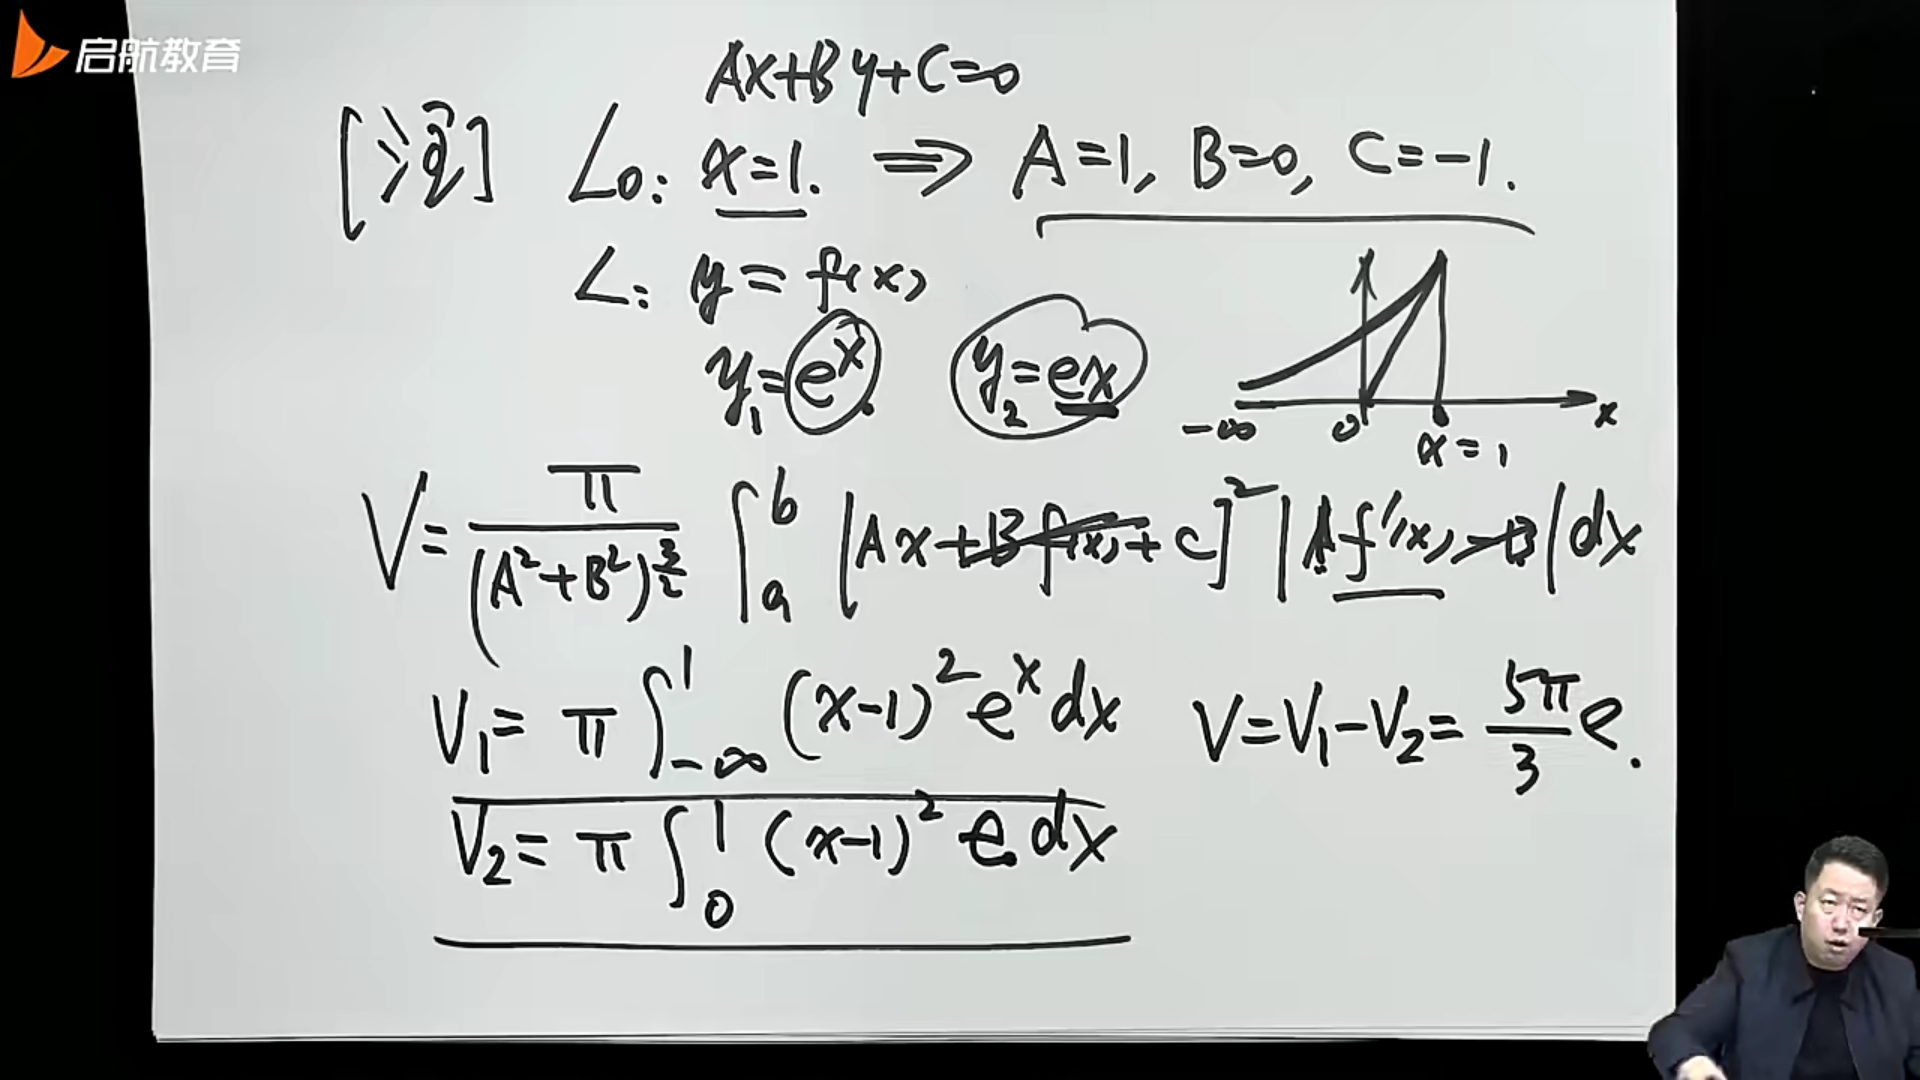 启航教育
Ax+By+C=0
[注] L₀: x=1. ⟹ A=1, B=0, C=-1.
L: y=f(x)
y₁=eˣ. y₂=ex
-∞ 0 x=1 x
V= π/(A²+B²)^(3/2) ∫_a^b [Ax+Bf(x)+C]² |Af'(x)-B| dx
V₁= π∫_{-∞}^1 (x-1)² eˣ dx V=V₁-V₂= 5π/3 e.
V₂= π∫_0^1 (x-1)² e dx